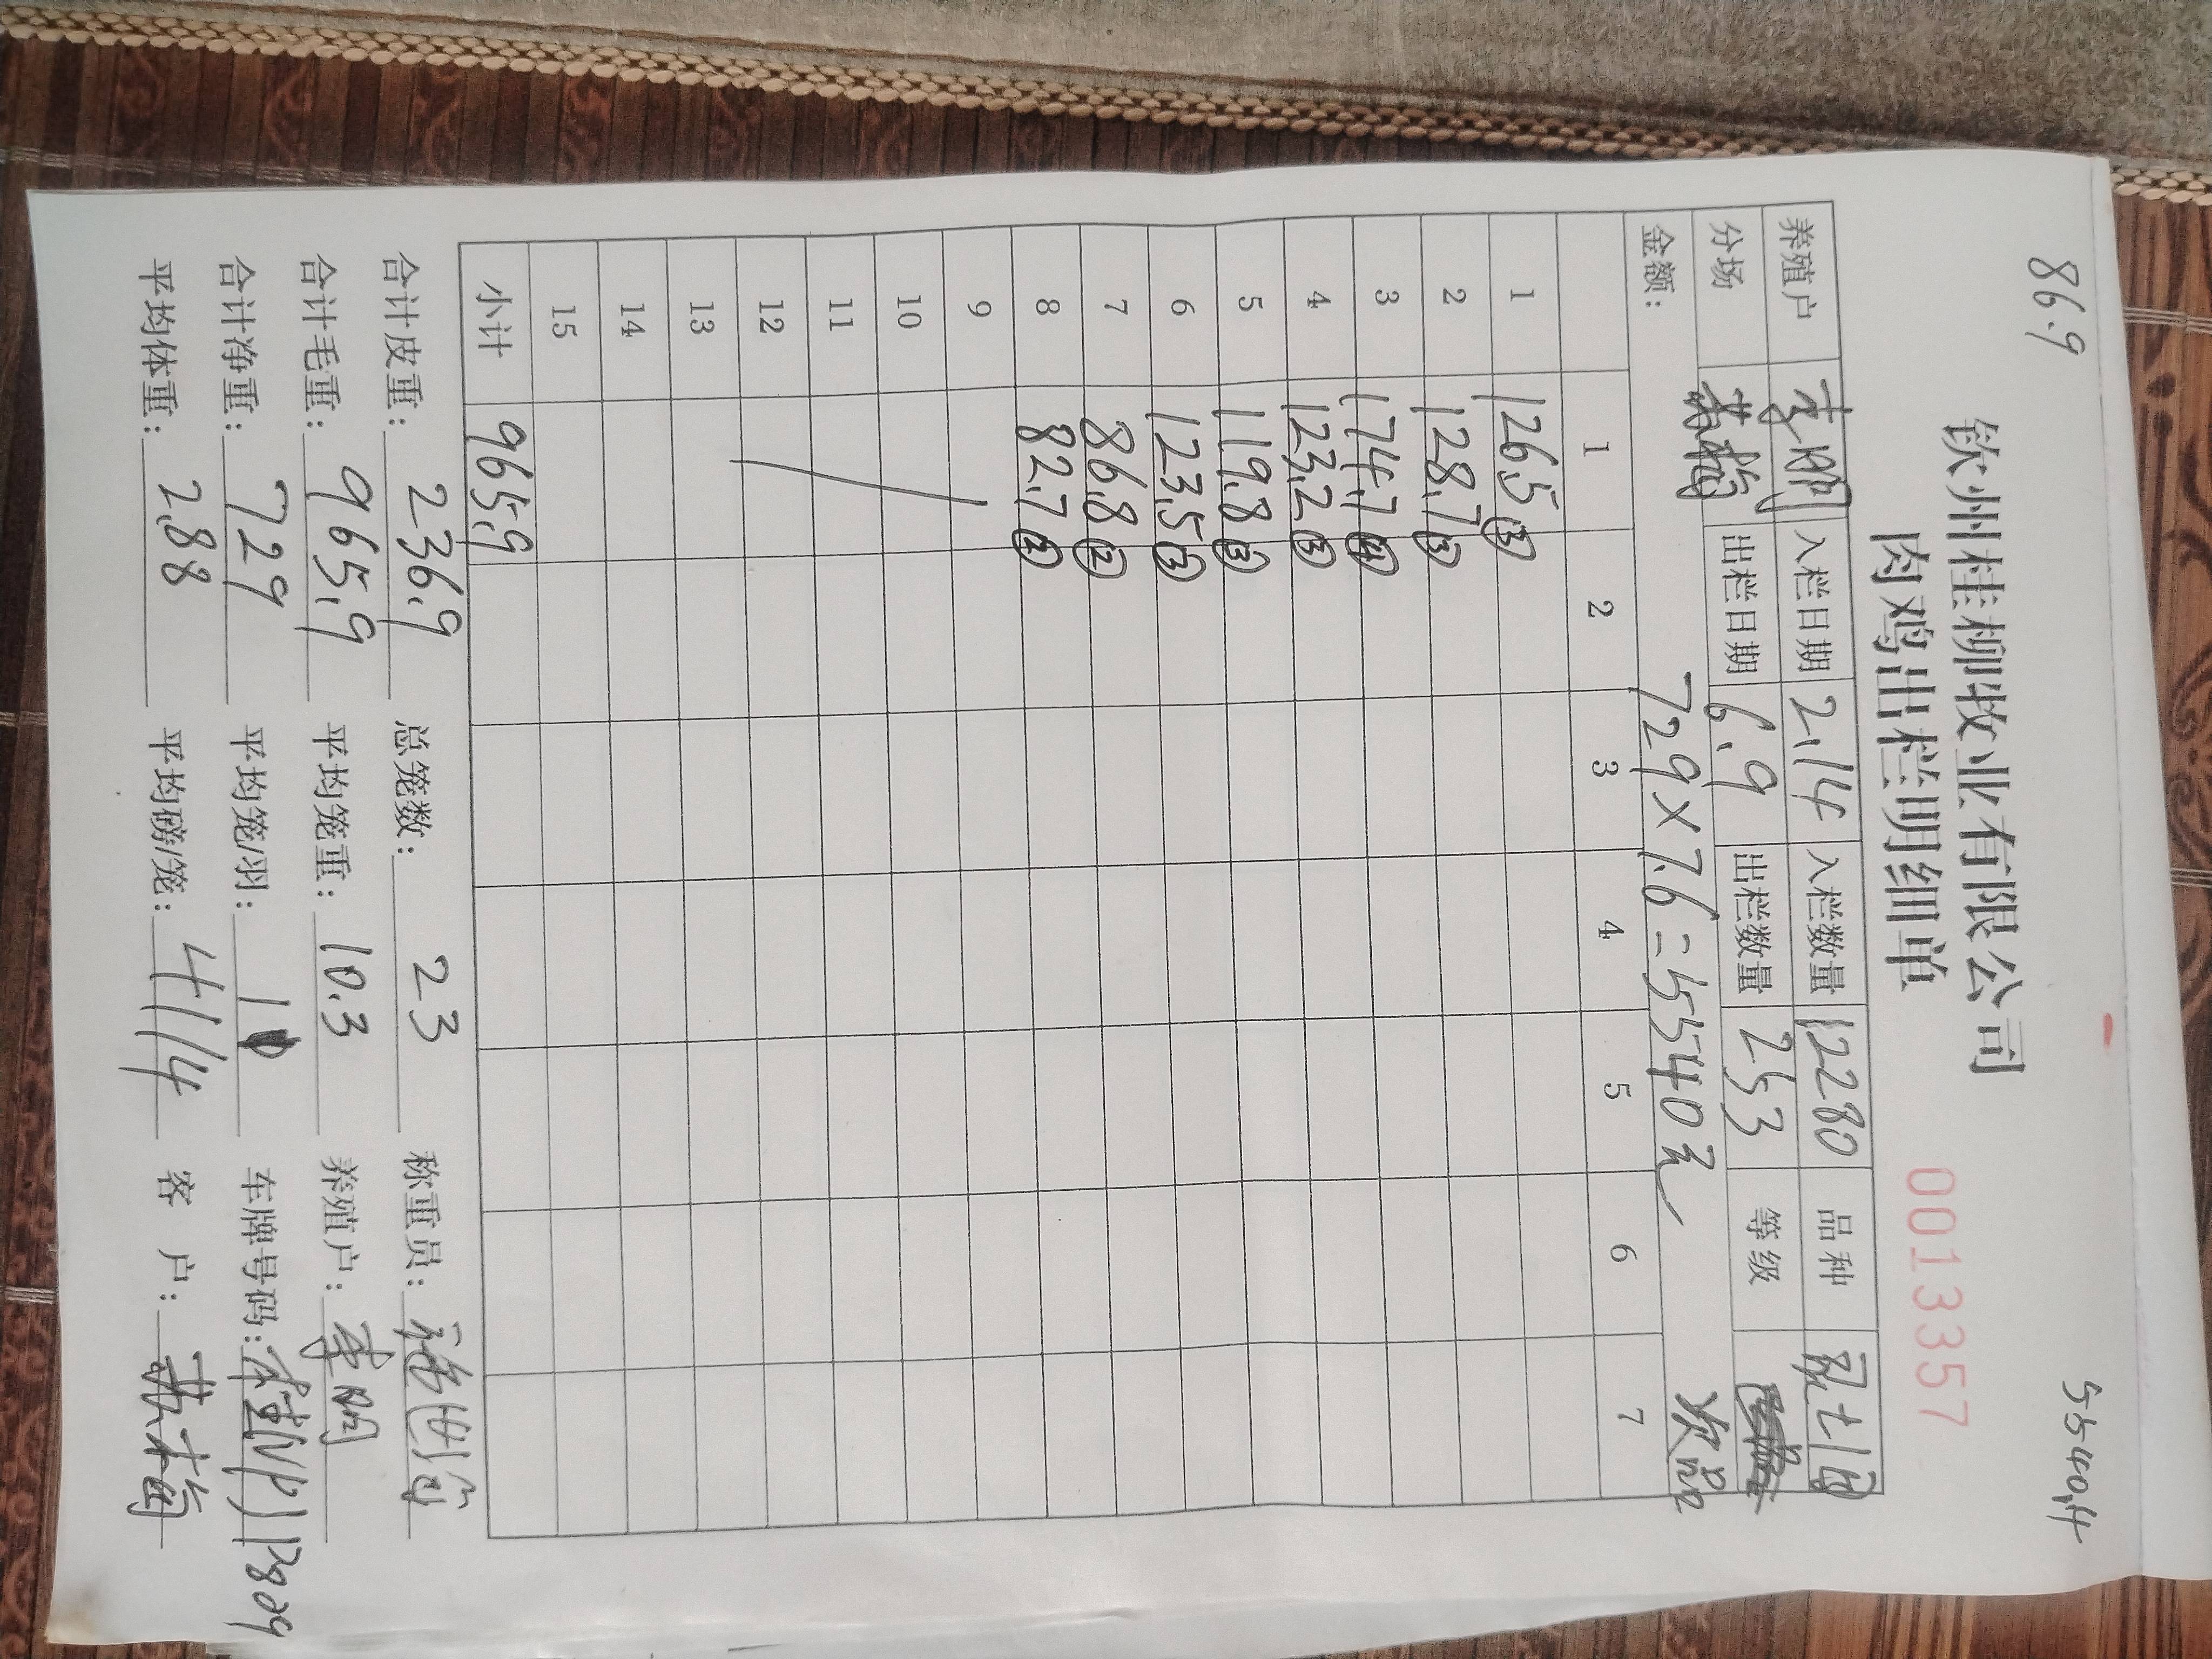 86.9
5540.4
钦州桂柳牧业有限公司
肉鸡出栏明细单
0013357
养殖户 李明 入栏日期 2.14 入栏数量 12280 品种
分场 出栏日期 6.9 出栏数量 253 等级
金额： 729×7.6=5540元 次品
1 2 3 4 5 6 7
1 126.5③
2 128.7③
3 174.7④
4 123.2③
5 119.8③
6 123.5③
7 86.8②
8 82.7②
9
10
11
12
13
14
15
小计 965.9
合计皮重：236.9 总笼数：23 称重员：
合计毛重：965.9 平均笼重：10.3 养殖户：李明
合计净重：729 平均笼/羽：11 车牌号码：
平均体重：2.88 平均磅/笼：4/14 客 户：